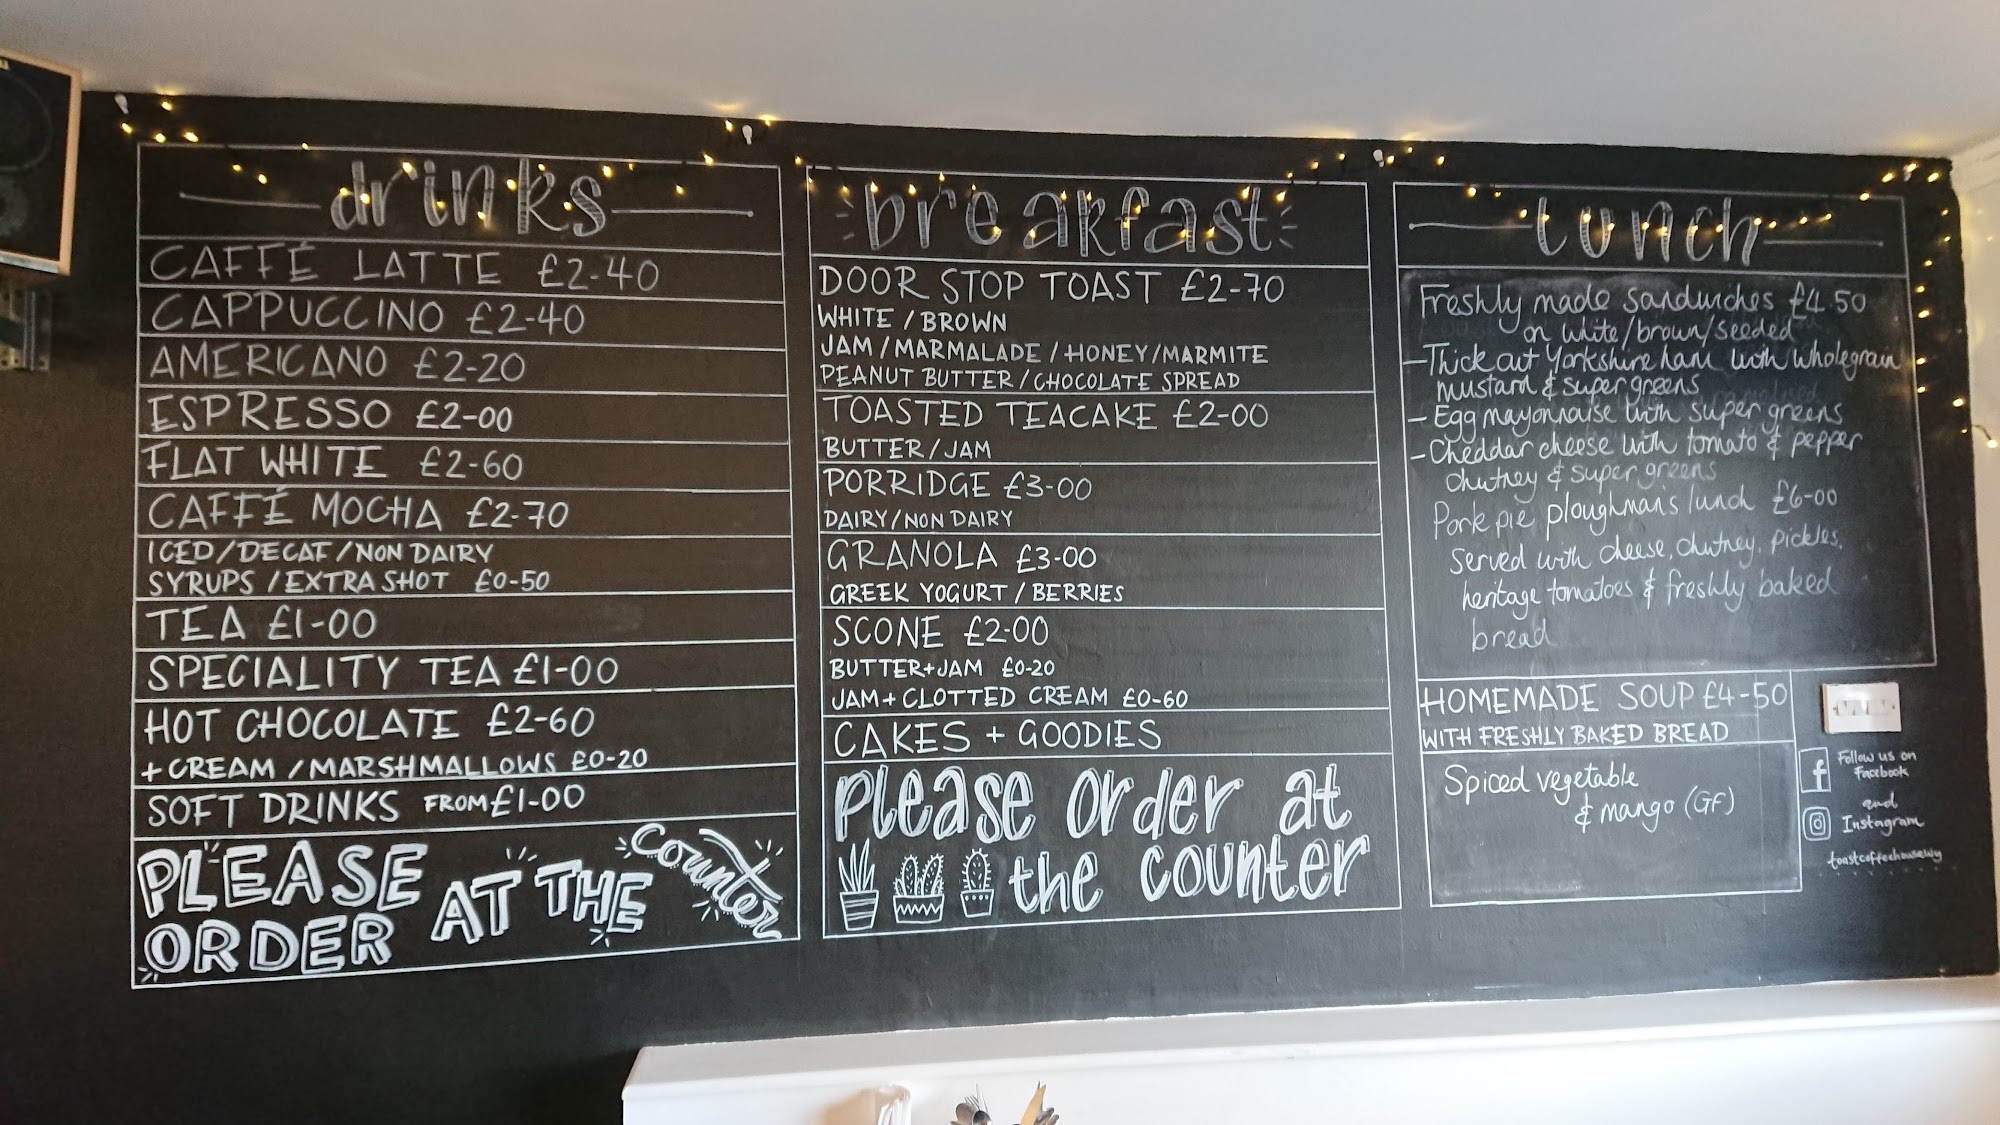 drinks
CAFFÉ LATTE £2-40
CAPPUCCINO £2-40
AMERICANO £2-20
ESPRESSO £2-00
FLAT WHITE £2-60
CAFFÉ MOCHA £2-70
ICED/DECAF/NON DAIRY
SYRUPS/EXTRA SHOT £0-50
TEA £1-00
SPECIALITY TEA £1-00
HOT CHOCOLATE £2-60
+ CREAM/MARSHMALLOWS £0-20
SOFT DRINKS FROM £1-00
PLEASE ORDER AT THE Counter
breakfast
DOOR STOP TOAST £2-70
WHITE/BROWN
JAM/MARMALADE/HONEY/MARMITE
PEANUT BUTTER/CHOCOLATE SPREAD
TOASTED TEACAKE £2-00
BUTTER/JAM
PORRIDGE £3-00
DAIRY/NON DAIRY
GRANOLA £3-00
GREEK YOGURT/BERRIES
SCONE £2-00
BUTTER+JAM £0-20
JAM+CLOTTED CREAM £0-60
CAKES + GOODIES
Please order at
the counter
lunch
Freshly made sandwiches £4.50
on white/brown/seeded
- Thick cut Yorkshire ham with wholegrain
mustard & super greens
- Egg mayonnaise with super greens
- Cheddar cheese with tomato & pepper
chutney & super greens
Pork pie ploughman's lunch £6-00
Served with cheese, chutney, pickles,
heritage tomatoes & freshly baked
bread
HOMEMADE SOUP £4-50
WITH FRESHLY BAKED BREAD
Spiced vegetable
& mango (GF)
f
Follow us on
Facebook
and
Instagram
toastcoffeehousewy